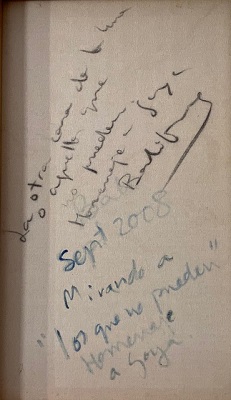 La otra cara de la luna
o aquello que
no pueden
Homenaje a Goya
Sept 2008
Mirando a
"los que no pueden"
Homenaje
a Goya.